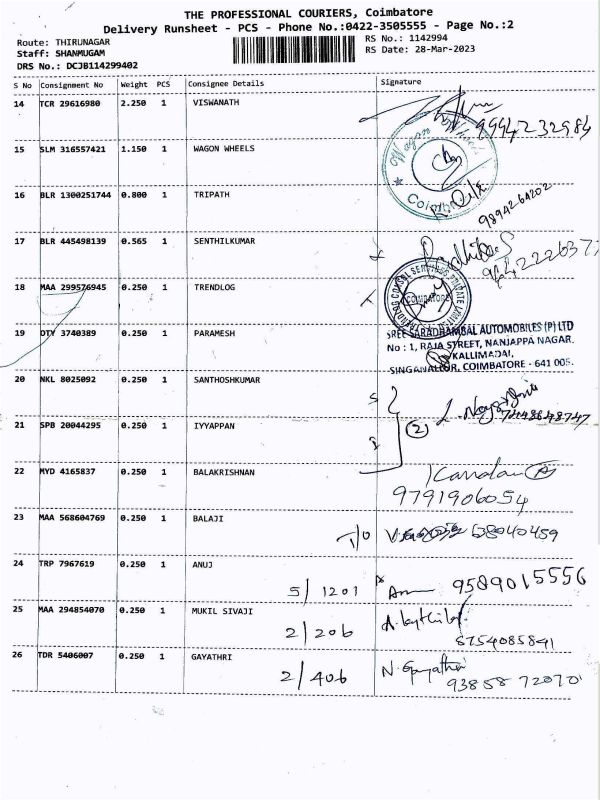 THE PROFESSIONAL COURIERS, Coimbatore
Delivery Runsheet - PCS - Phone No.:0422-3505555 - Page No.:2
Route: THIRUNAGAR
Staff: SHANMUGAM
DRS No.: DCJB114299402
RS No.: 1142994
RS Date: 28-Mar-2023
S No Consignment No Weight PCS Consignee Details Signature
14 TCR 29616980 2.250 1 VISWANATH
9994232984
15 SLM 316557421 1.150 1 WAGON WHEELS
Wagon Wheels
Coimbatore
16 BLR 1300251744 0.800 1 TRIPATH
9894264202
17 BLR 445498139 0.565 1 SENTHILKUMAR
18 MAA 299576945 0.250 1 TRENDLOG
COIMBATORE
19 DTY 3740389 0.250 1 PARAMESH
SREE SARADHAMBAL AUTOMOBILES (P) LTD
No : 1, RAJA STREET, NANJAPPA NAGAR.
KALLIMADAI,
SINGANALLUR, COIMBATORE - 641 005.
20 NKL 8025092 0.250 1 SANTHOSHKUMAR
21 SPB 20044295 0.250 1 IYYAPPAN
2
22 MYD 4165837 0.250 1 BALAKRISHNAN
9791906054
23 MAA 568604769 0.250 1 BALAJI
24 TRP 7967619 0.250 1 ANUJ
5/1201 9589015556
25 MAA 294854070 0.250 1 MUKIL SIVAJI
2/206
26 TDR 5406007 0.250 1 GAYATHRI
2/406 N. Gayathri
93858 72070